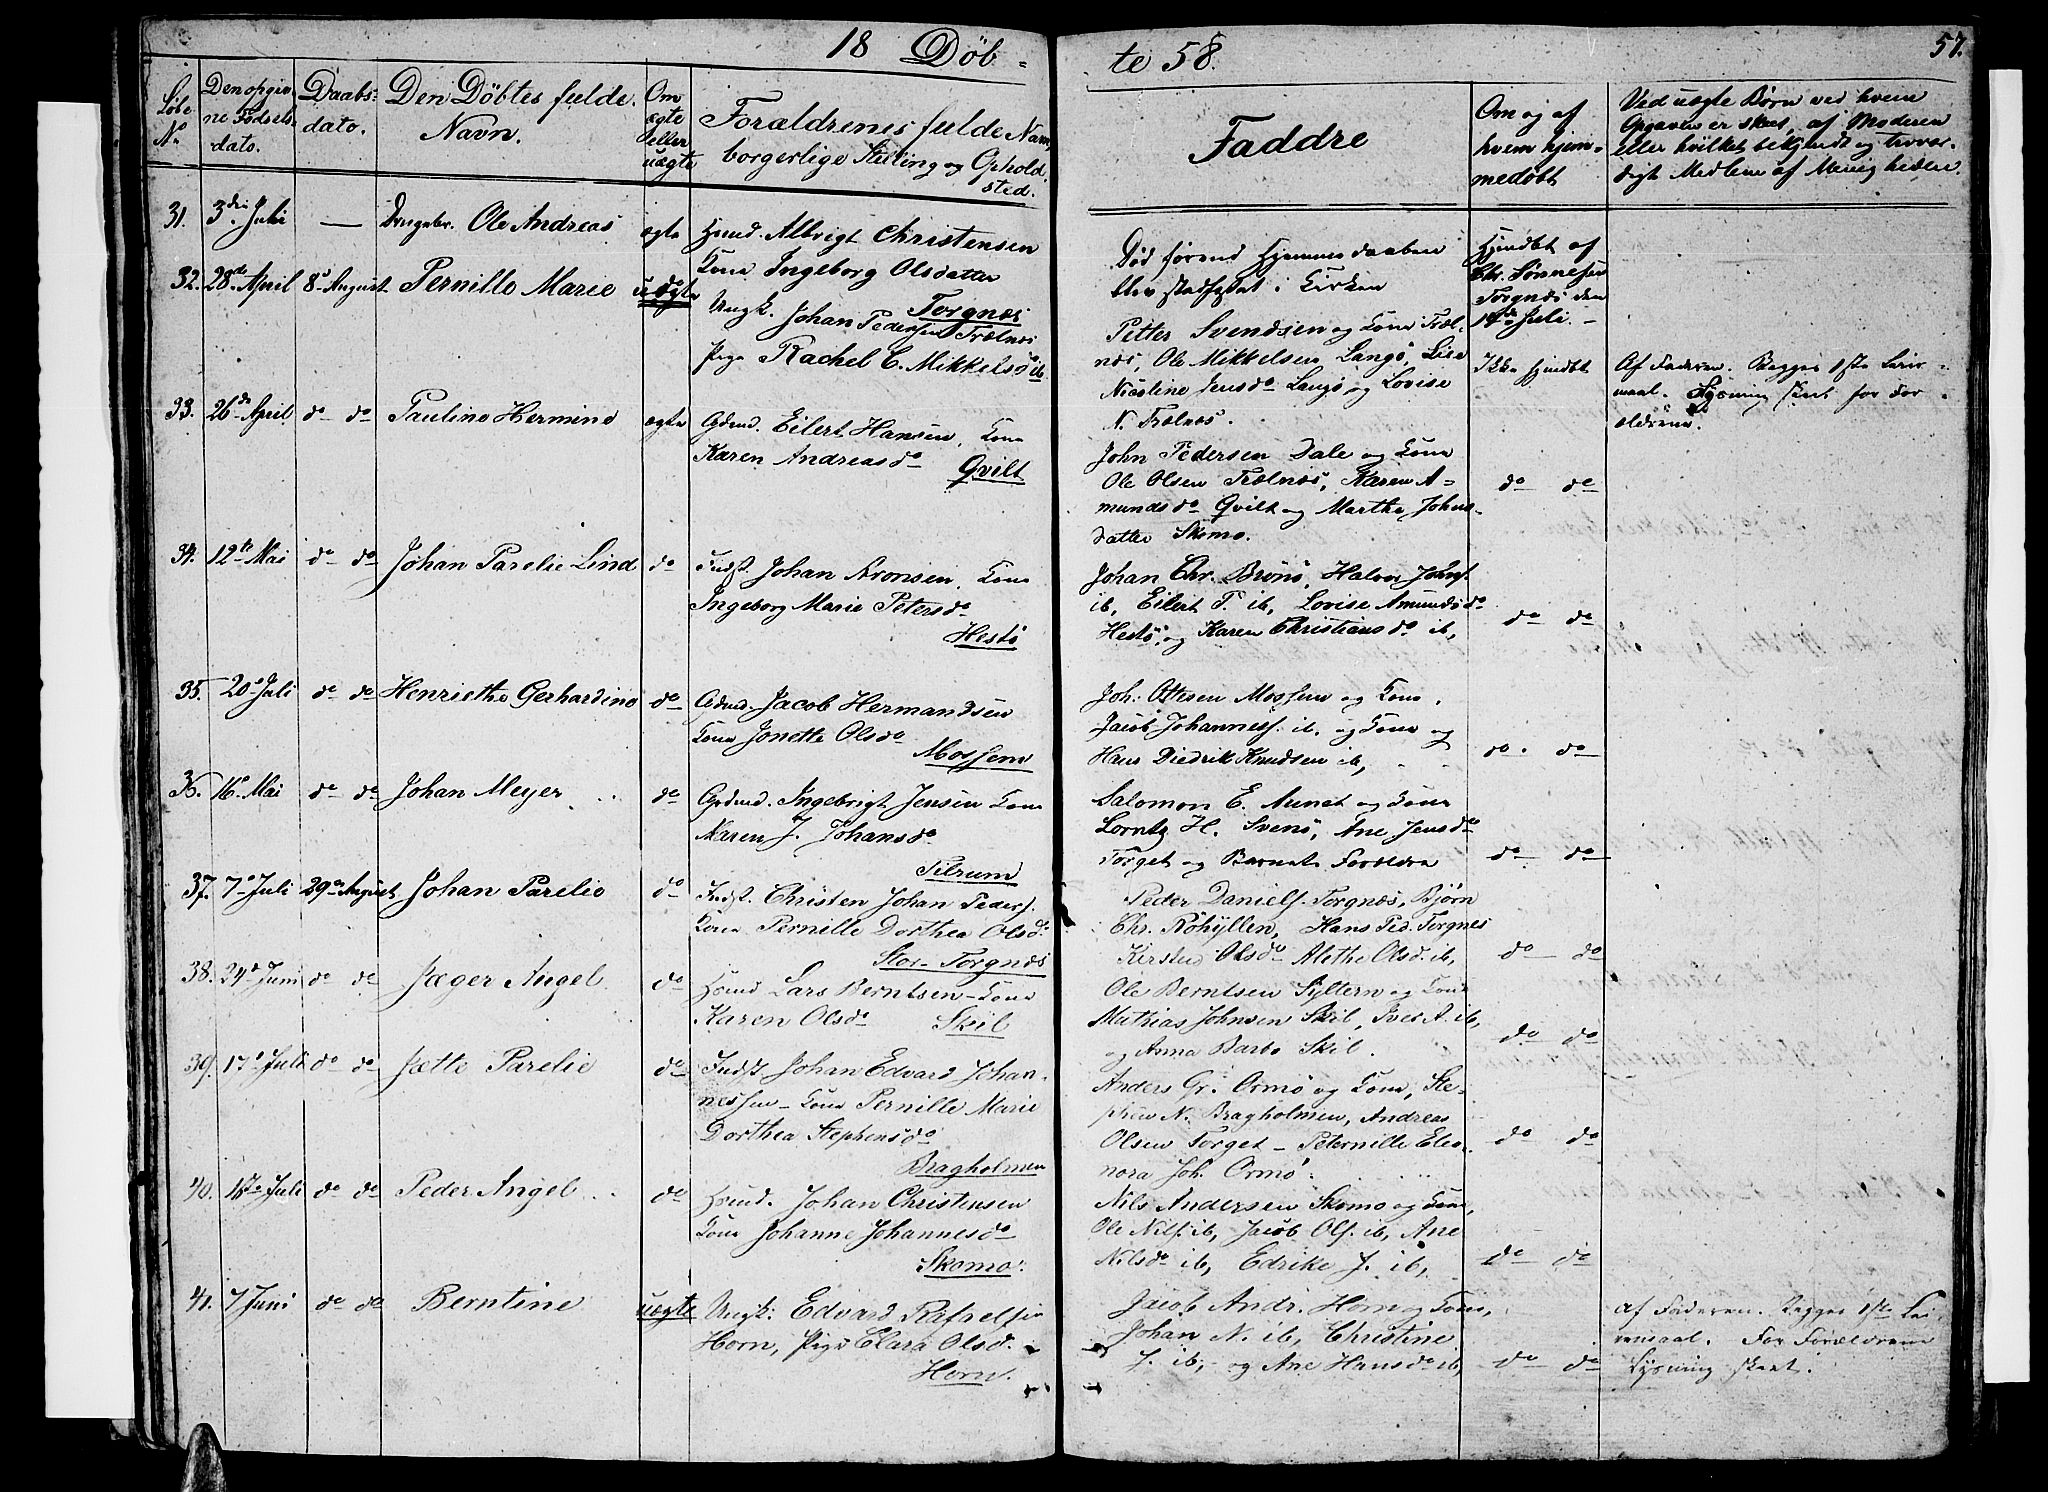 18 Döb-
te 58.
57.
Löbe
No
Den opgiv
ne Fødsels
dato.
Daabs-
dato.
Den Döbtes fulde
Navn.
Om
ægte
eller
uægte
Forældrenes fulde Navn,
borgerlige Stilling og Ophold
sted.
Faddre
Om og af
hvem hjem-
medøbt
Ved uægte Børn ved hvem
Opgaven er skeet, af Moderen
eller hvilket bekjendt og trovær-
digt Medlem af Menigheden.
31. 3die Juli — Drengebr. Ole Andreas ægte
Huusd. Albrigt Christensen
Kone Ingeborg Olsdatter
Torgnæs
Död förend Hjemmedaaben
blev stadfæstet i Kirken
Hjmdbt af
Chr. Sönnesen
Torgnæs den
19de Juli. -
32. 28de April 8de August Pernille Marie uægte
Ungk. Johan Pedersen Trælnæs
Pige Rachel C. Mikkelsdr ib
Petter Svendsen og Kone Træl-
næs, Ole Mikkelsen Langö,
Nicoline Jensdr Langö og Lovise
N. Trælnæs.
Ikke hjmdbt
Af Faderen. Begges 1ste Leier-
maal. Lysning skeet for For-
ældrene.
33. 26de April do do Pauline Hermine ægte
Grdmd. Eilert Hansen, Kone
Karen Andreasdr
Qvilt
John Pedersen Dale og Kone
Ole Olsen Trælnæs, Karen A-
mundsdr Qvilt og Marthe Johns-
datter Skomo.
do do
34. 12te Mai do do Johan Parelie Lind do
Indst. Johan Aronsen, Kone
Ingeborg Marie Petersdr
Hestö
Johan Chr. Brönö, Halvor Johns.
ib, Eilert P. ib, Lovise Amundsdr
Hestö, og Karen Christiansdr ib,
do do
35. 20de Juli do do Henriethe Gerhardine do
Grdmd. Jacob Hermandsen
Kone Jonette Olsdr
Mosheim
Joh. Ottesen Mosheim og Kone,
Jacob Johanness. ib. og Kone og
Hans Diedrik Knudsen ib,
do do
36. 16de Mai do do Johan Meyer do
Grdmd. Ingebrigt Jensen Kone
Karen J. Johansdr
Tilrum
Salomon E. Aunet og Kone
Lorntz H. Svenö, Ane Jensdr
Torget og Barnets Forældre
do do
37. 7de Juli 29de August Johan Parelie do
Indst. Christen Johan Peders.
Kone Pernille Dorthea Olsdr
Stor-Torgnæs
Peder Daniels. Torgnæs, Björn
Chr. Röhyllen, Hans Ped. Torgnes
Kirsten Olsdr Alethe Olsd. ib,
do do
38. 24de Juni do do Jæger Angel do
Huusd Lars Berntsen - Kone
Karen Olsdr Skil
Ole Berntsen Syltern og Kone
Mathias Johnsen Skil, Iver A. ib,
og Anna Barbo Skil.
do do
39. 17de Juli do do Jætte Parelie do
Indst Johan Edvard Johan-
nessen - Kone Pernille Marie
Dorthea Stephensdr
Bragholmen
Anders Gr. Ormö og Kone, Ste-
phen N. Bragholmen, Andreas
Olsen Torget - Peternille Eleo-
nora Joh. Ormö.
do do
40. 16de Juli do do Peder Angel do
Huusd. Johan Christensen
Kone Johanne Johannesdr
Skomo.
Nils Andersen Skomo og Kone,
Ole Nils. ib, Jacob Ols. ib, Ane
Nilsdr ib, Edrike J. ib,
do do
41. 7 Juni do do Berntine uægte
Ungk: Edvard Rafaelsen
Horn, Pige Clara Olsd.
Horn.
Jacob Andr. Horn og Kone,
Johan N. ib, Christine
J. ib, - og Ane Hansdr ib,
do do
Af Faderen. Begges 1ste Lei-
ermaal. For Forældrene
Lysning skeet.